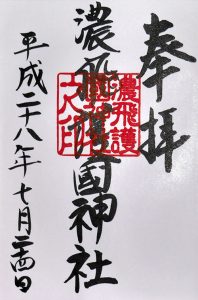 奉拝
濃飛護國神社
濃飛護
國神社
平成二十八年七月二四日